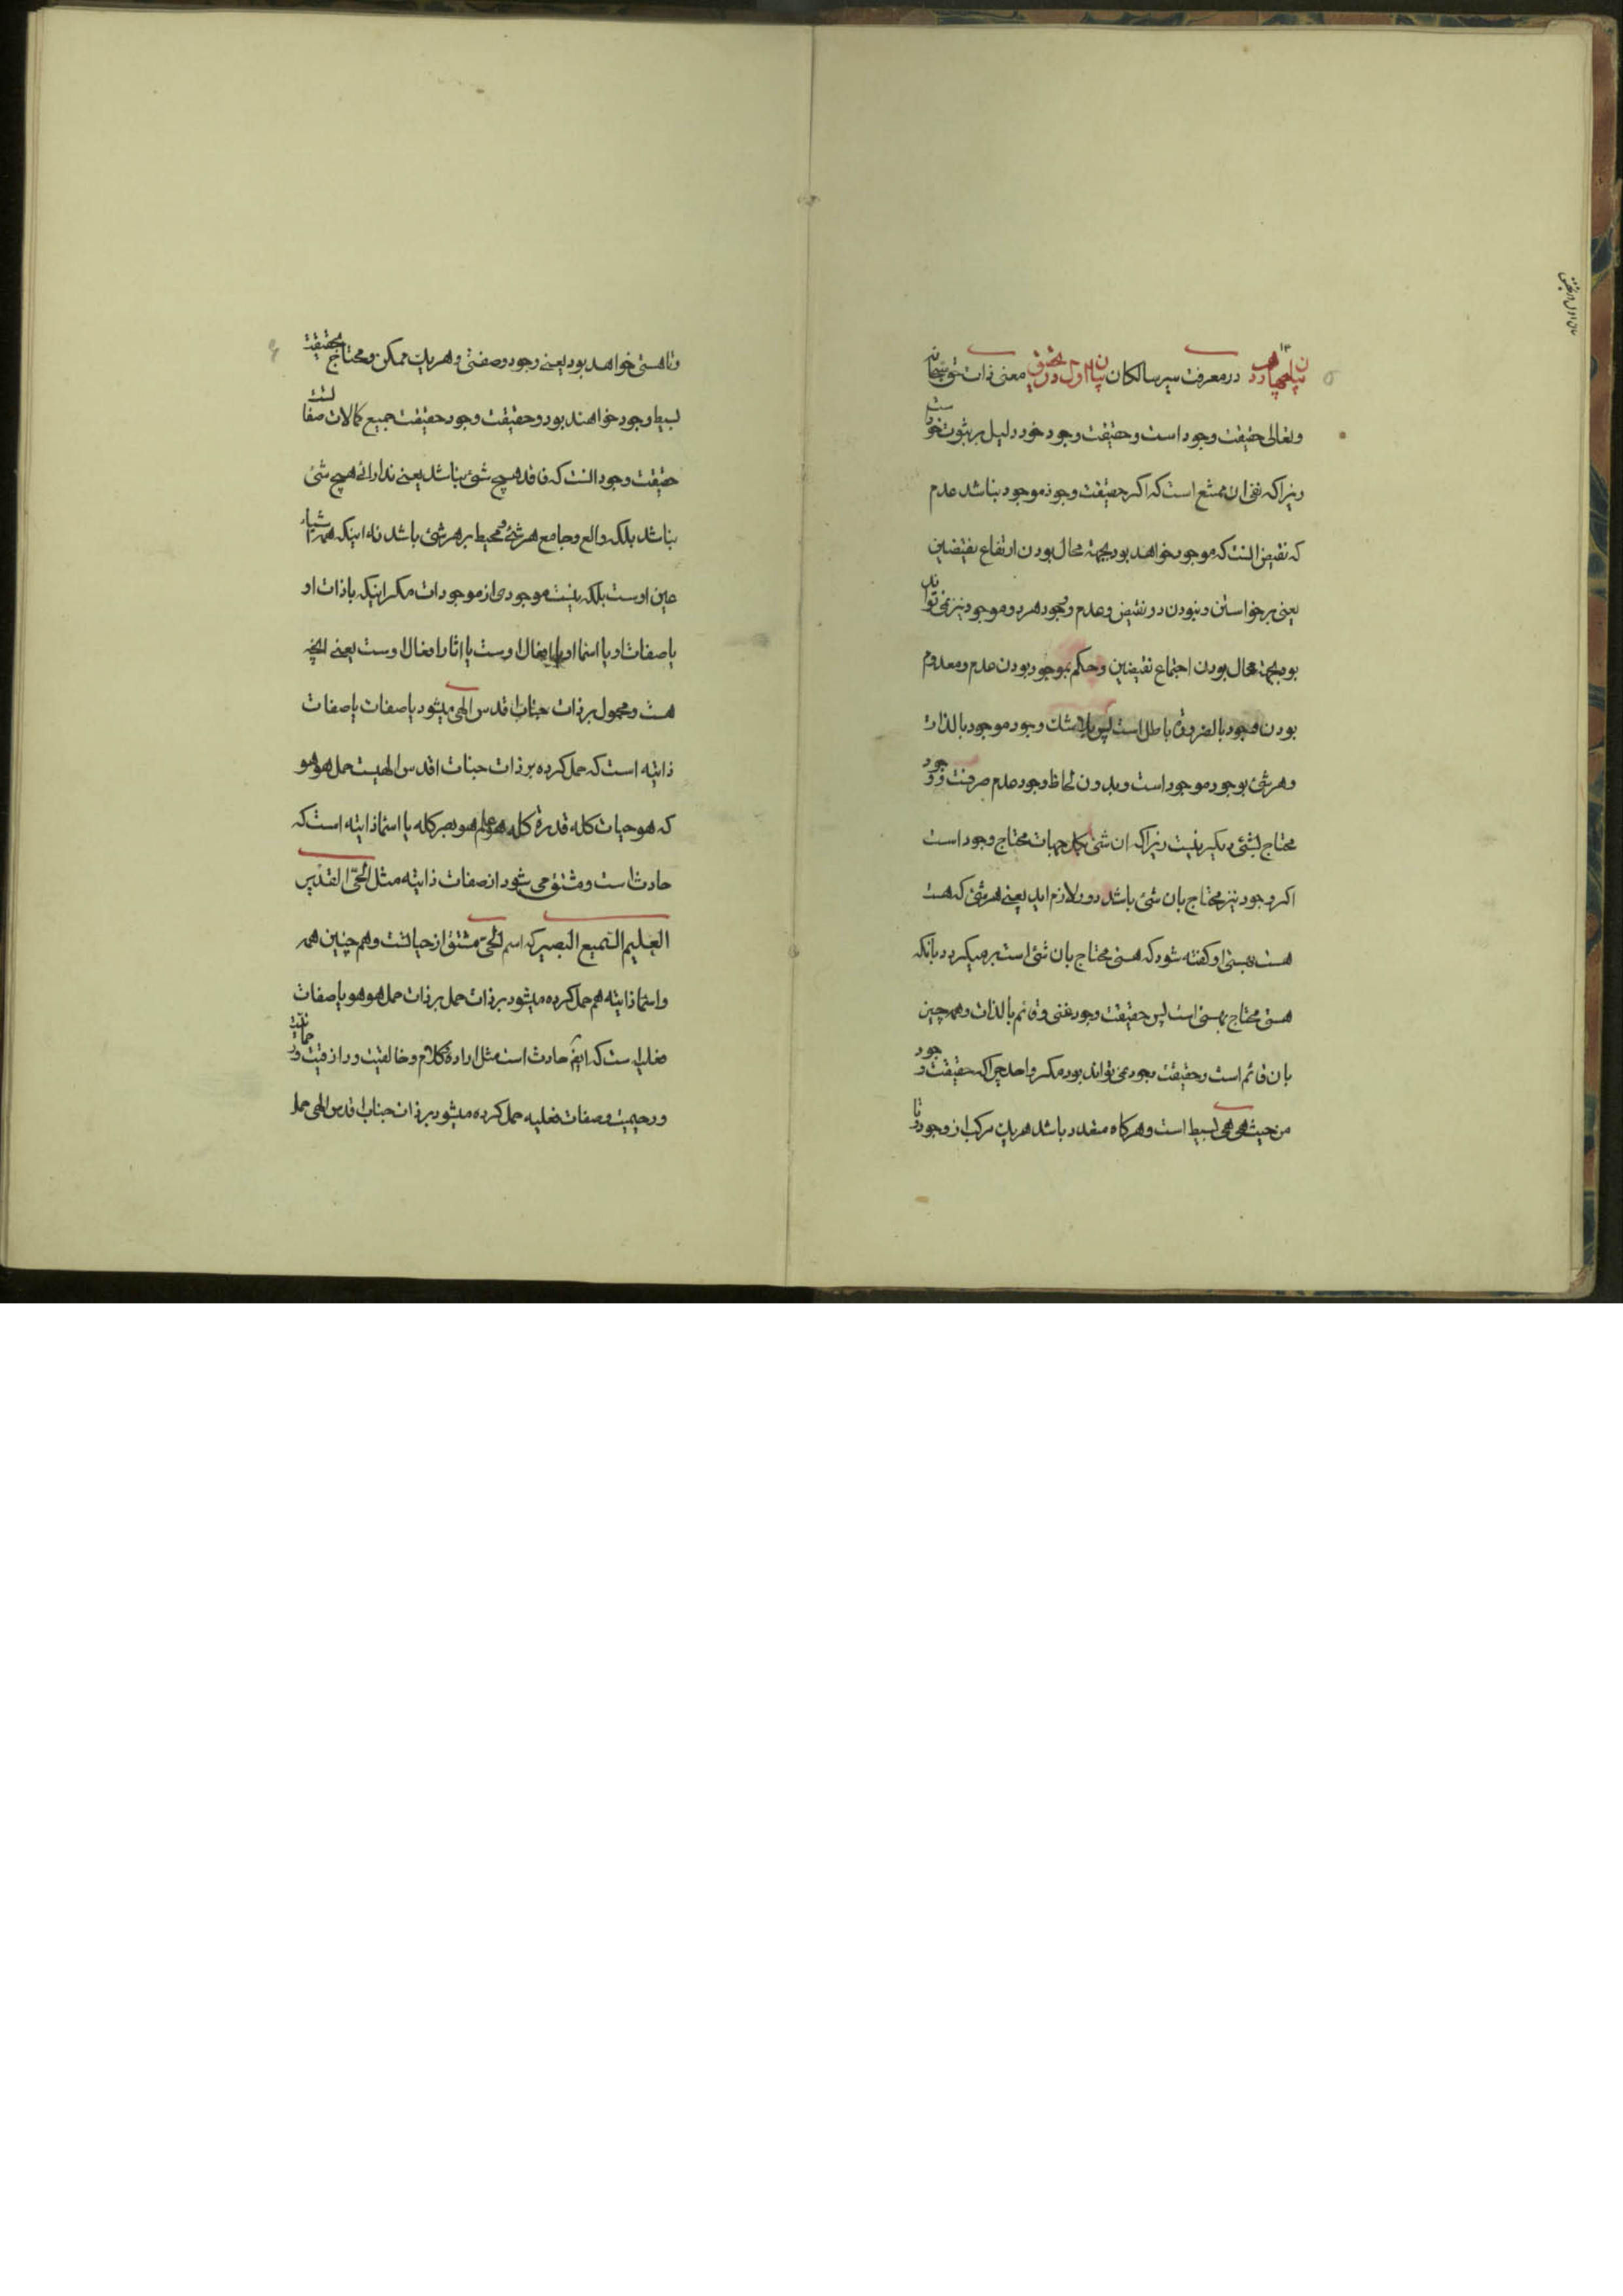 بیان چهاردهم در معرفت سیر سالکان بیان اول در تحقیق معنی ذات حق سبحانه
وتعالی حقیقت وجود است وحقیقت وجود خود دلیل بر ثبوت خود است
زیرا که نفی ان ممتنع است که اکر حقیقت وجود موجود نباشد عدم
که نقیض انست که موجود خواهد بود بجهة محال بودن ارتفاع نقیضین
یعنی برخواستن ونبودن دو نقیض وعدم ووجود هردو موجود نیز نمی تواند
بود بجهة محال بودن اجتماع نقیضین وحکم بموجود بودن عدم ومعدوم
بودن وجود بالضروره باطل است پس بلا شک وجود موجود بالذات
وهر شئ بوجود موجود است وبدون لحاظ وجود عدم صرفست ووجود
محتاج بشئی دیکیر نیست زیرا که ان شئ بکل جهات محتاج وجود است
اکر وجود نیز محتاج بان شئ باشد دور لازم اید یعنی هر شئ که هست
هست بهستی او کفته شود که هستی محتاج بان شئ است بر میکردد بانکه
هستی محتاج بهستی است پس حقیقت وجود غنی وقائم بالذات وهمه چیز
بان قائم است وحقیقت وجود نمی تواند بود مکر واحد چرا که حقیقت وجود
من حیث هی هی بسیط است وهرکاه متعدد باشد هریک مرکب از وجود
وتا هستی خواهد بود یعنی وجود وصفتی وهریک ممکن ومحتاج بحقیقت
بسیط وجود خواهند بود وحقیقت وجود حقیقت جمیع کمالات صفا
حقیقت وجود انست که فاقد هیچ شئ نباشد یعنی ندارائے هیچ شئ
نباشد بلکه واسع وجامع هر شئ ومحیط بر هر شئ باشد نه اینکه همه اشیاء
عین اوست بلکه نیست موجودی از موجودات مکر اینکه یا ذات او
یا صفات او یا اسما او یا افعال اوست یا اثار افعال اوست یعنی انچه
هست ومحمول بر ذات جناب اقدس الهی میشود یا صفات یا صفات
ذاتیه است که حمل کرده بر ذات جناب اقدس الهیست حمل هو هو
که هو حیات کله قدرة کله هو علم هو بصر کله یا اسماذاتیه است که
حادث است ومشتق می شود از صفات ذاتیه مثل الحیّ القدیر
العلیم السّمیع البصیر که اسم الحیّ مشتق از حیاتست وهم چنین همه
واسما ذاتیه هم حمل کرده میشود بر ذات حمل بر ذات حمل هو هو یا صفات
فعلیه است که ایضا حادث است مثل اراده وکلام وخالقیت ورازقیت ورحمانیت
ورحیمیت وصفات فعلیه حمل کرده میشود بر ذات جناب اقدس الهی حمل